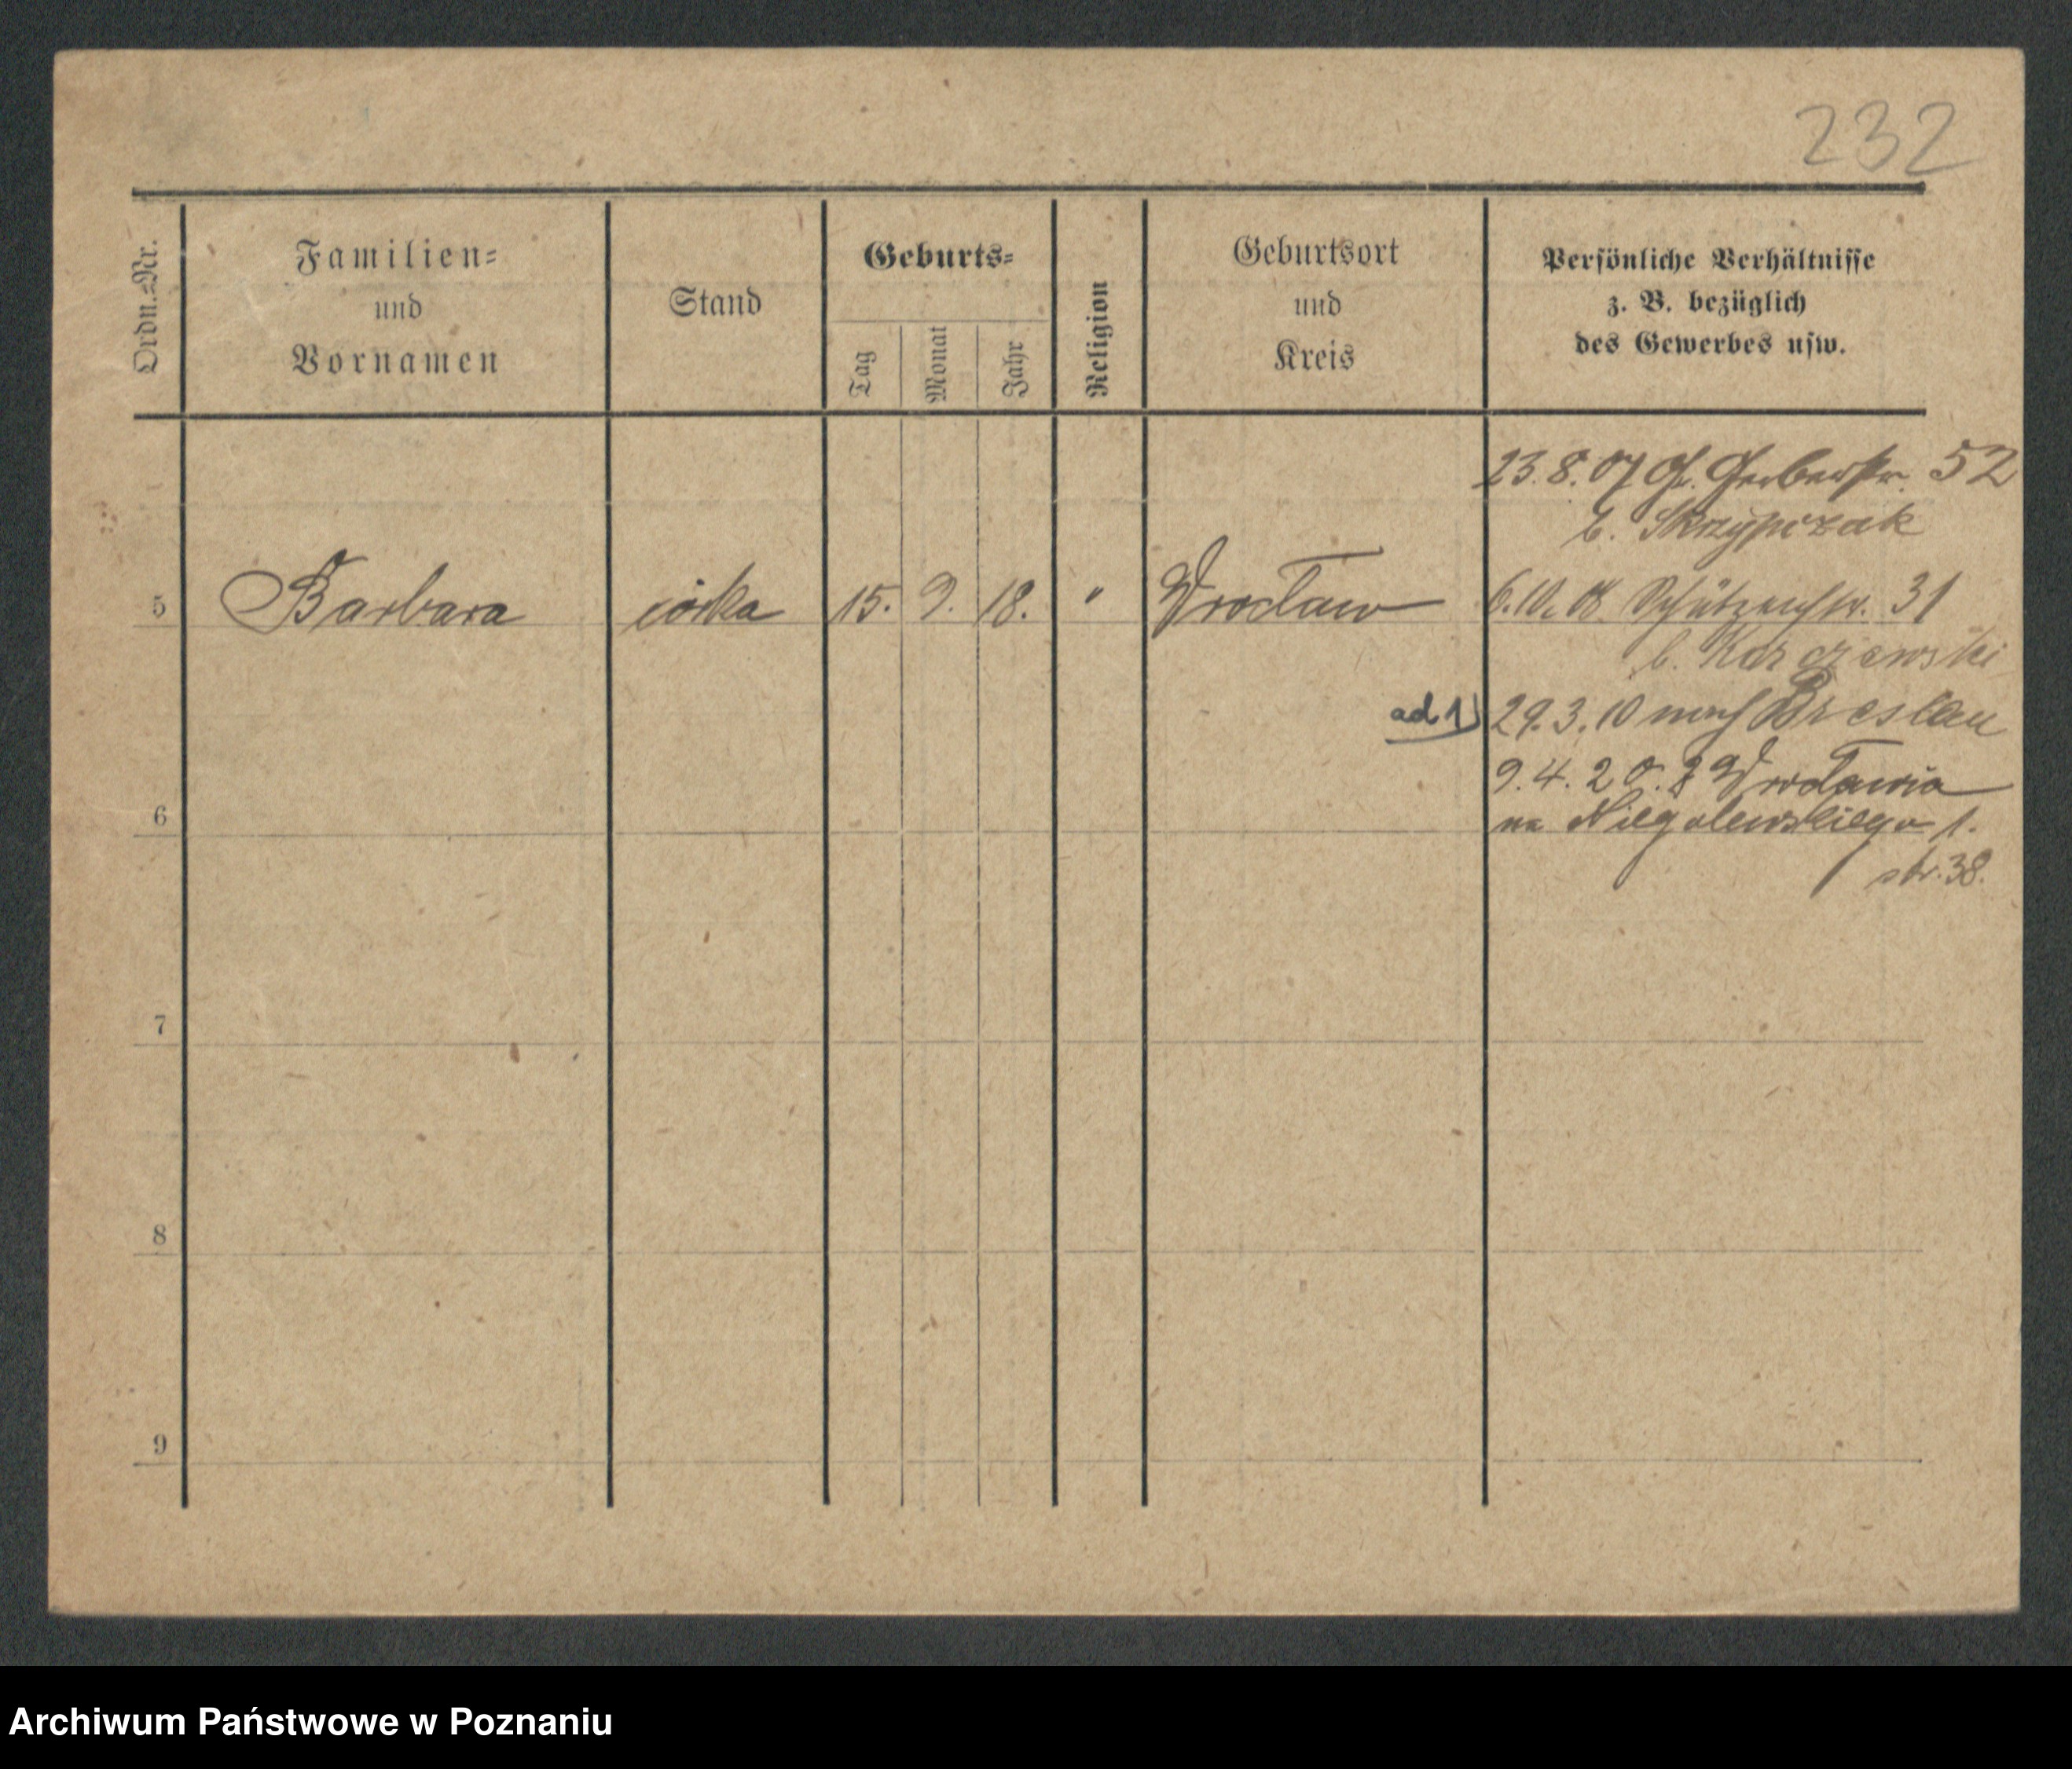 232
Ordn.-Nr.
Familien-
und
Vornamen
Stand
Geburts-
Tag
Monat
Jahr
Religion
Geburtsort
und
Kreis
Persönliche Verhältnisse
z. B. bezüglich
des Gewerbes usw.
23.8.07 Gr. Gerberstr. 52
b. Skrzypczak
5 Barbara córka 15. 9. 18. " Wrocław
6.10.08 Schützenstr. 31
b. Karczewski
ad 1) 29.3.10 nach Breslau
9.4.20. z Wrocławia
6
na Niegolewskiego 1.
str. 38.
7
8
9
Archiwum Państwowe w Poznaniu